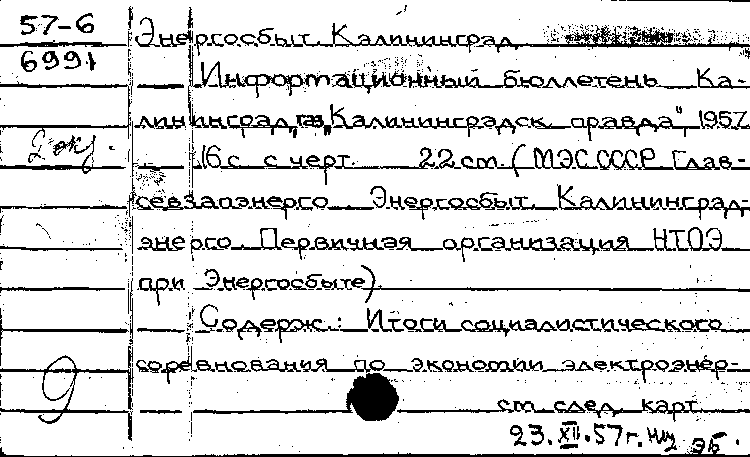 57-6
6991
Энергосбыт. Калининград.
Информационный бюллетень Ка-
лининград, газ. „Калининградск. правда", 1957.
16 с. с черт. 22 см. (МЭС СССР. Глав-
севзапэнерго. Энергосбыт. Калининград-
энерго. Первичная организация НТОЭ
при Энергосбыте).
Содерж.: Итоги социалистического
соревнования по экономии электроэнер-
см. след. карт.
9
23.XII.57г.
эб.